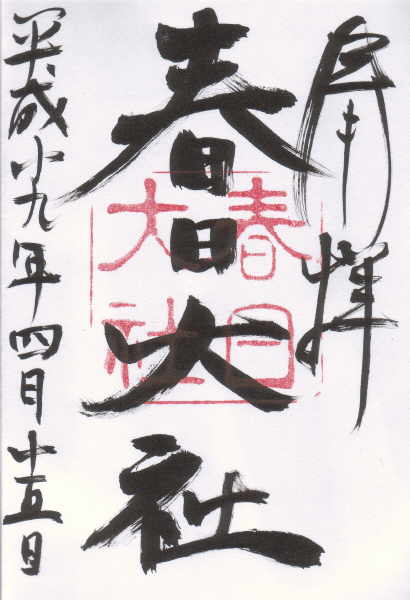 奉拝
春日大社
春日大社
平成十九年四月十五日